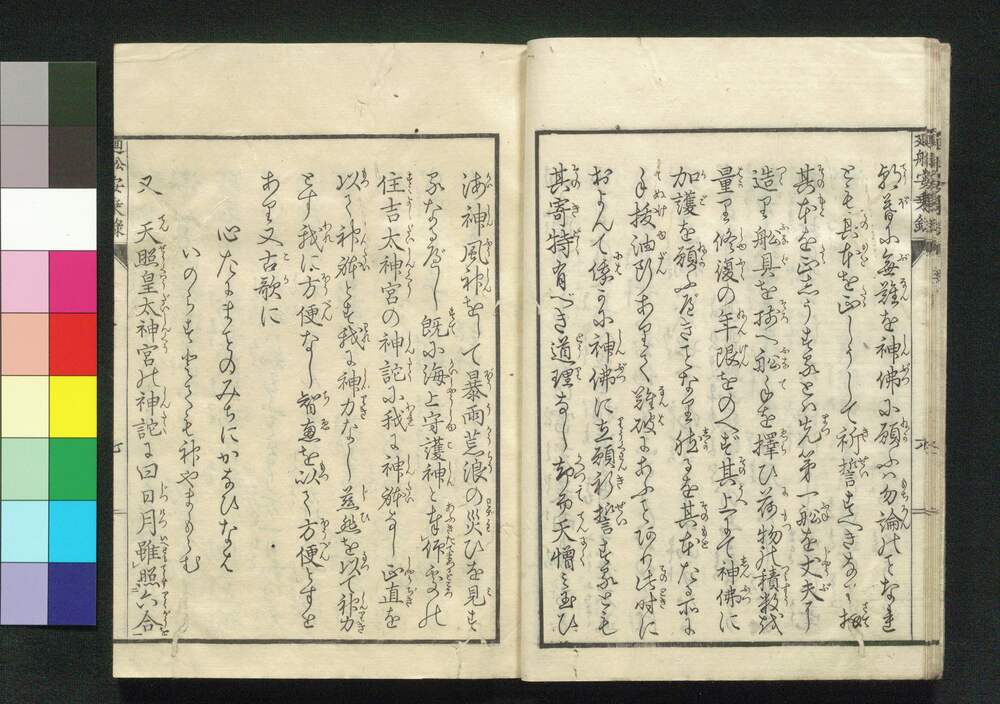 廻船安乗録
願ふ神佛に願ふハ勿論のことなれ
とも其本を正しうして祈誓すへきなり扨
其本を正しうするとハ先第一舩を丈夫に
造り舩具を揃へ舩手を擇ひ荷物の積数を
量り修復の年限をのべず其上にて神佛に
加護を願ふべきことなり然るを其本たる所に
手抜油断ありて難破にあふことあり此時に
およんで俄に神佛に立願祈誓するとも
其寄特有べき道理なし却而天憎ミ玉ひ
海神風神をして暴雨荒浪の災ひを見す
るなるべし既に海上守護神と奉仰処の
住吉太神宮の神詫に我に神躰なし正直を
以て神躰とす我に神力なし慈悲を以て神力
とす我に方便なし智恵を以て方便とすと
あり又古歌に
心たにまことのみちにかなひなは
いのらすとても神やまもらむ
又 天照皇太神宮の神詫に曰日月雖照六合
廻舩安乗録